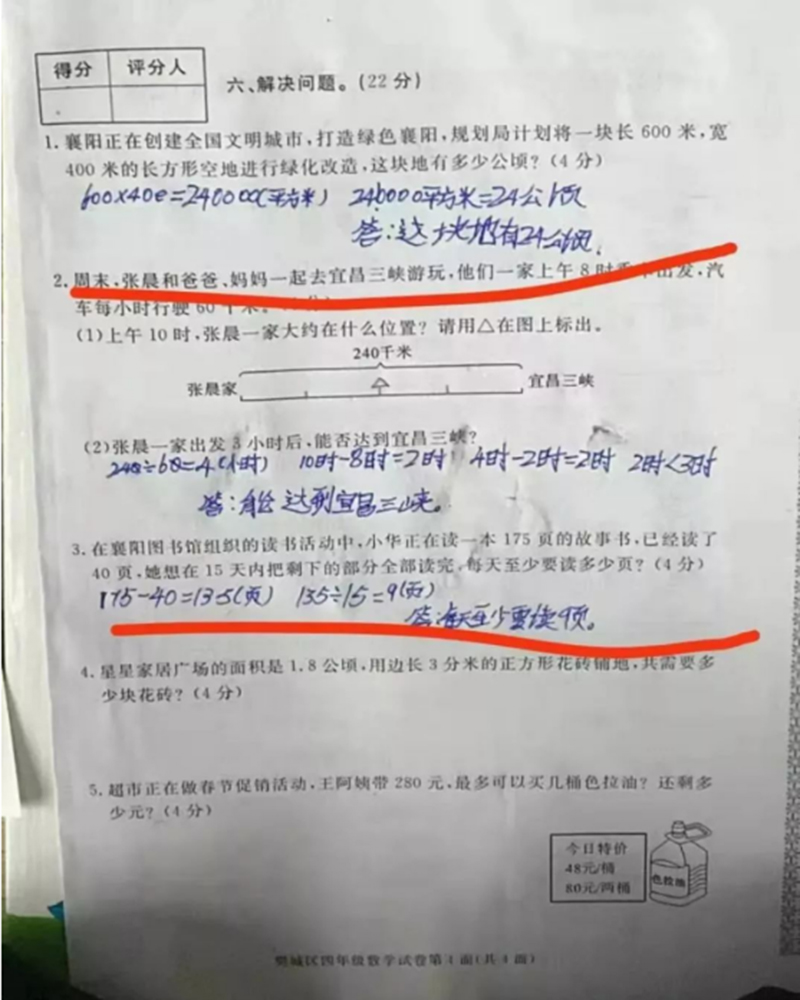 得分 评分人
六、解决问题。(22 分)
1. 襄阳正在创建全国文明城市,打造绿色襄阳,规划局计划将一块长 600 米,宽
400 米的长方形空地进行绿化改造,这块地有多少公顷? (4 分)
600×400=240000(平方米) 240000平方米=24公顷
答:这块地有24公顷。
2. 周末,张晨和爸爸、妈妈一起去宜昌三峡游玩,他们一家上午 8 时 出发,汽
车每小时行驶 60 千米。
(1)上午 10 时,张晨一家大约在什么位置? 请用△在图上标出。
240千米
张晨家 宜昌三峡
(2)张晨一家出发 3 小时后,能否达到宜昌三峡?
240÷60=4(小时) 10时-8时=2时 4时-2时=2时 2时<3时
答:能达到宜昌三峡。
3. 在襄阳图书馆组织的读书活动中,小华正在读一本 175 页的故事书,已经读了
40 页,她想在 15 天内把剩下的部分全部读完,每天至少要读多少页? (4 分)
175-40=135(页) 135÷15=9(页)
答:每天至少要读9页。
4. 星星家居广场的面积是 1.8 公顷,用边长 3 分米的正方形花砖铺地,共需要多
少块花砖? (4 分)
5. 超市正在做春节促销活动,王阿姨带 280 元,最多可以买几桶色拉油? 还剩多
少元? (4 分)
今日特价
48元/桶
80元/两桶
色拉油
樊城区四年级数学试卷第 4 面(共 4 面)